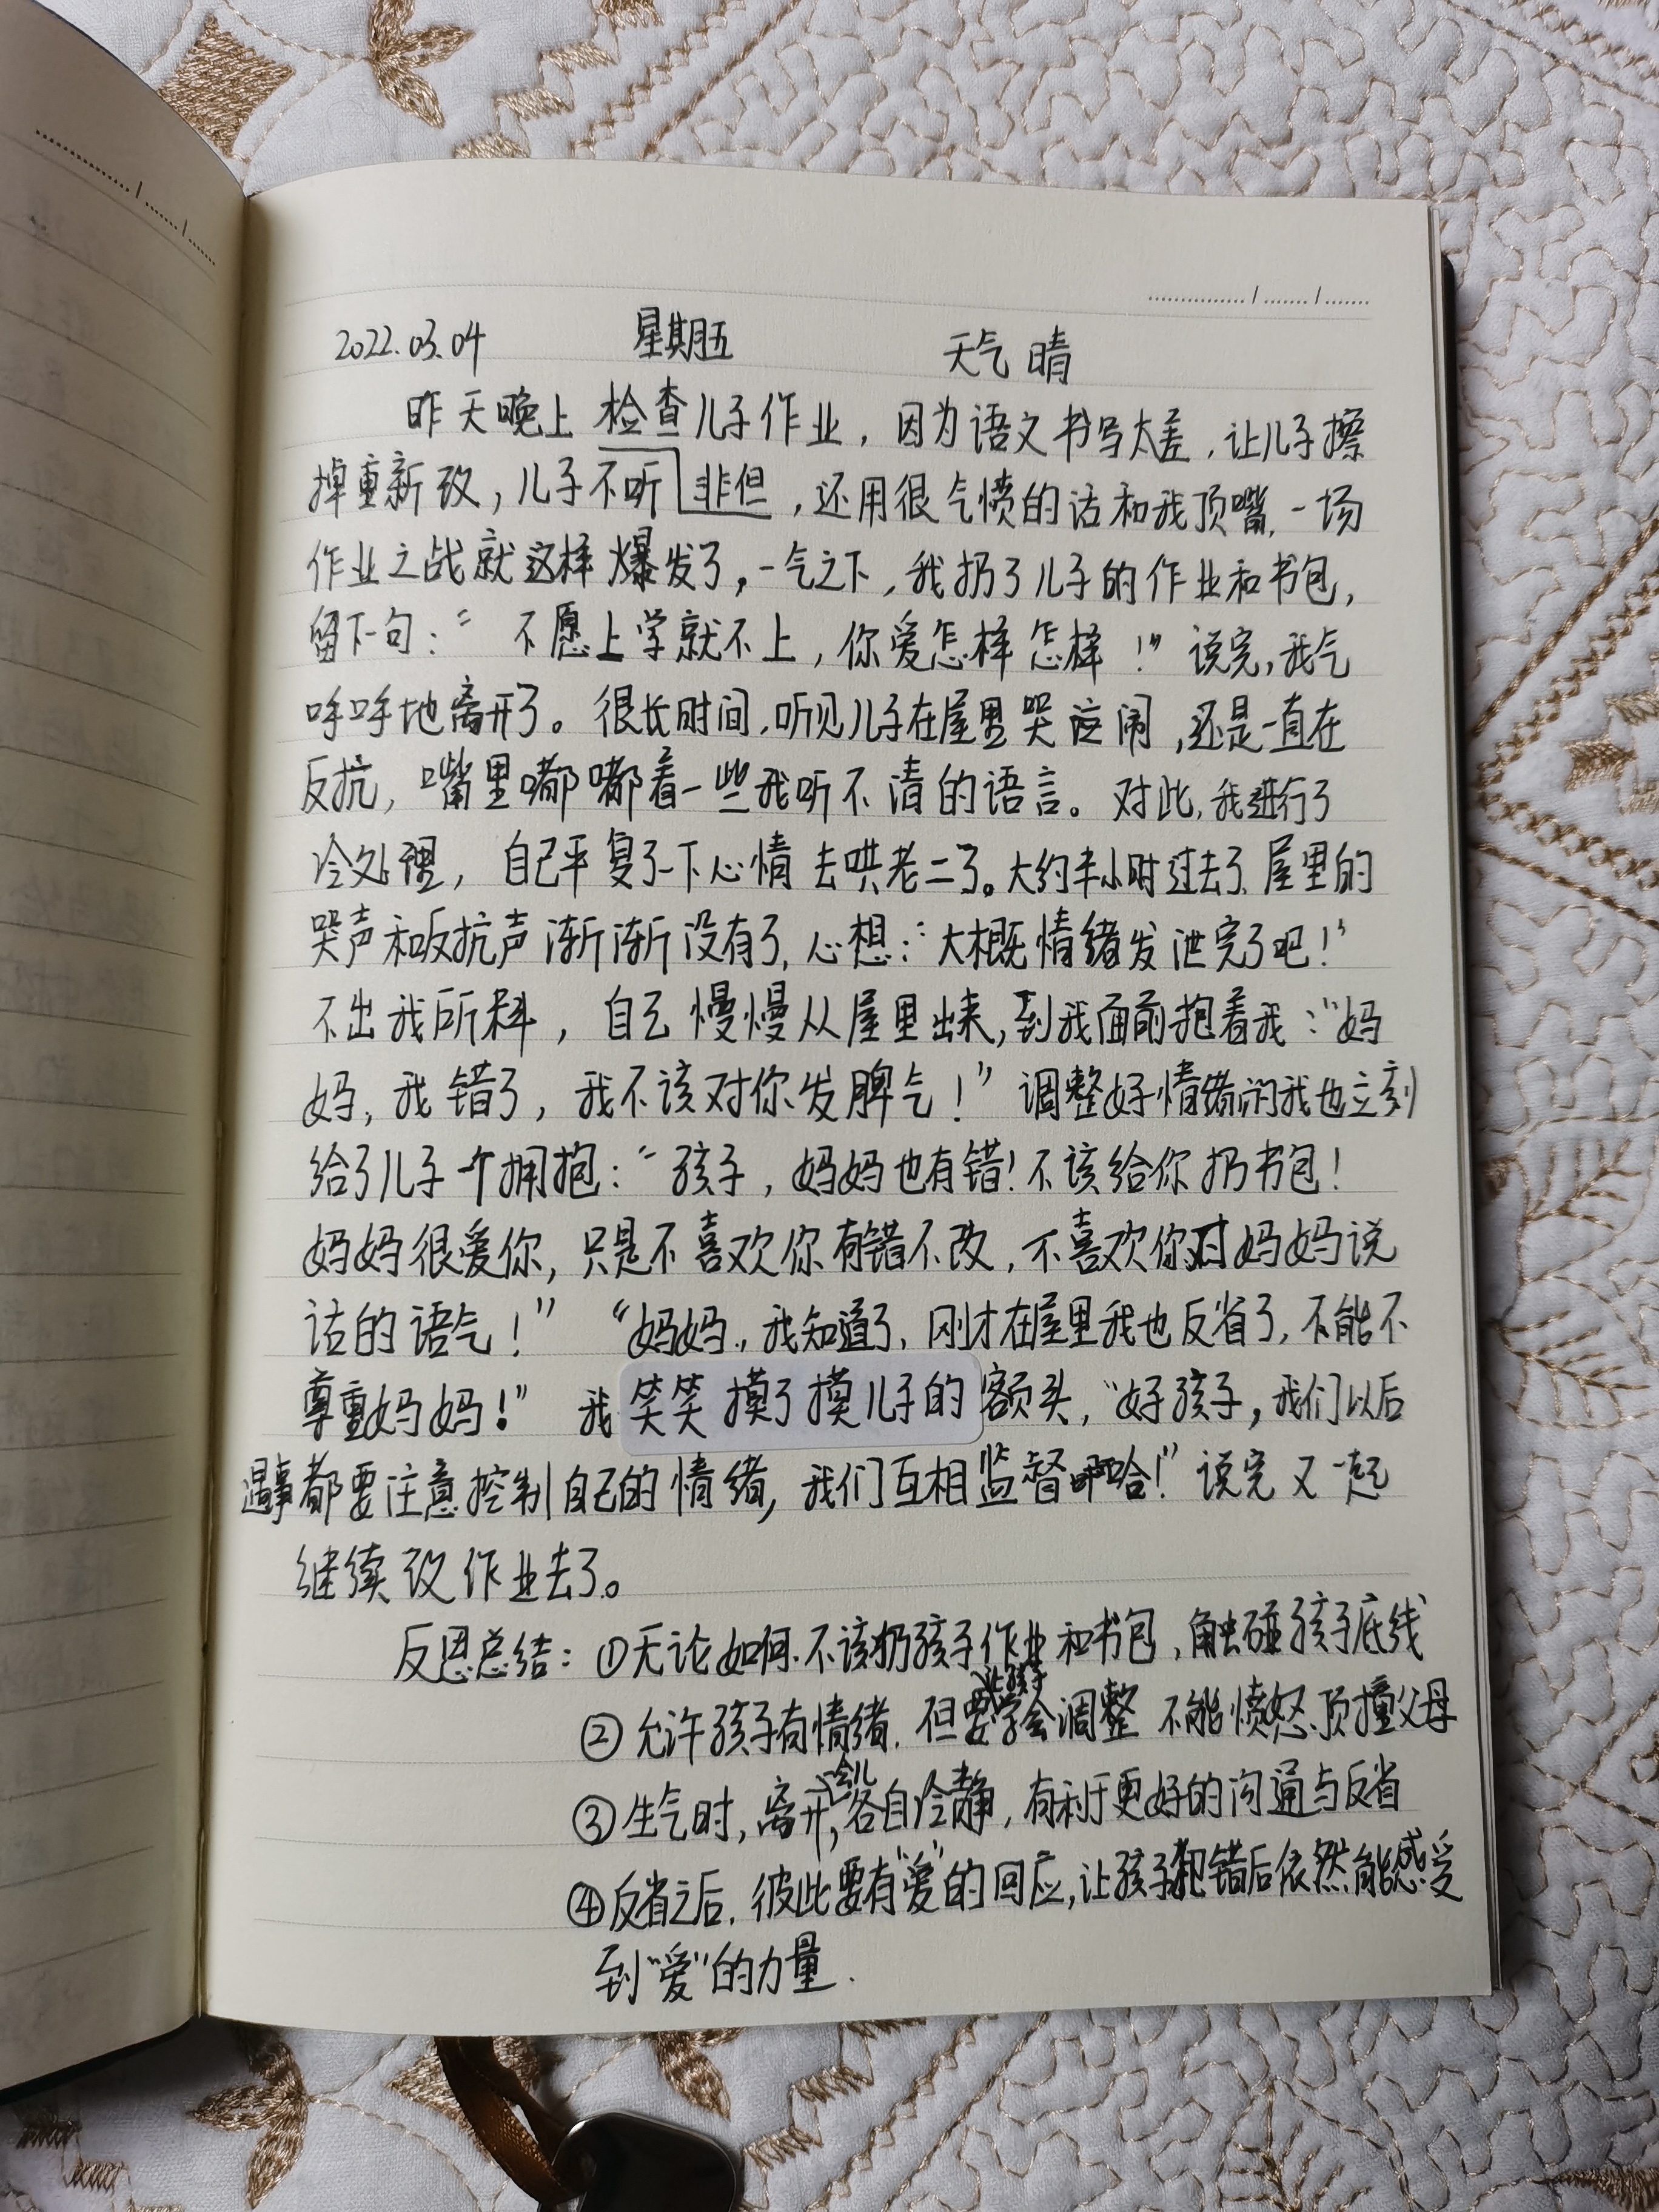 2022.03.04 星期五 天气 晴
昨天晚上检查儿子作业，因为语文书写太差，让儿子擦
掉重新改，儿子不听非但，还用很气愤的话和我顶嘴，一场
作业之战就这样爆发了，一气之下，我扔了儿子的作业和书包，
留下一句：“不愿上学就不上，你爱怎样怎样！”说完，我气
呼呼地离开了。很长时间，听见儿子在屋里哭泣闹，还是一直在
反抗，嘴里嘟嘟着一些我听不清的语言。对此，我进行了
冷处理，自己平复了一下心情去哄老二了。大约半小时过去了，屋里的
哭声和反抗声渐渐没有了，心想：“大概情绪发泄完了吧！”
不出我所料，自己慢慢从屋里出来，到我面前抱着我：“妈
妈，我错了，我不该对你发脾气！”调整好情绪的我也立刻
给了儿子一个拥抱：“孩子，妈妈也有错！不该给你扔书包！
妈妈很爱你，只是不喜欢你有错不改，不喜欢你对妈妈说
话的语气！”“妈妈，我知道了，刚才在屋里我也反省了，不能不
尊重妈妈！”我笑笑摸了摸儿子的额头，“好孩子，我们以后
遇事都要注意控制自己的情绪，我们互相监督啊哈！”说完又一起
继续改作业去了。
反思总结：①无论如何，不该扔孩子作业和书包，触碰孩子底线
②允许孩子有情绪，但要让孩子学会调整 不能愤怒、顶撞父母
③生气时，离开一会儿，各自冷静，有利于更好的沟通与反省
④反省之后，彼此要有“爱”的回应，让孩子犯错后依然能感受
到“爱”的力量．